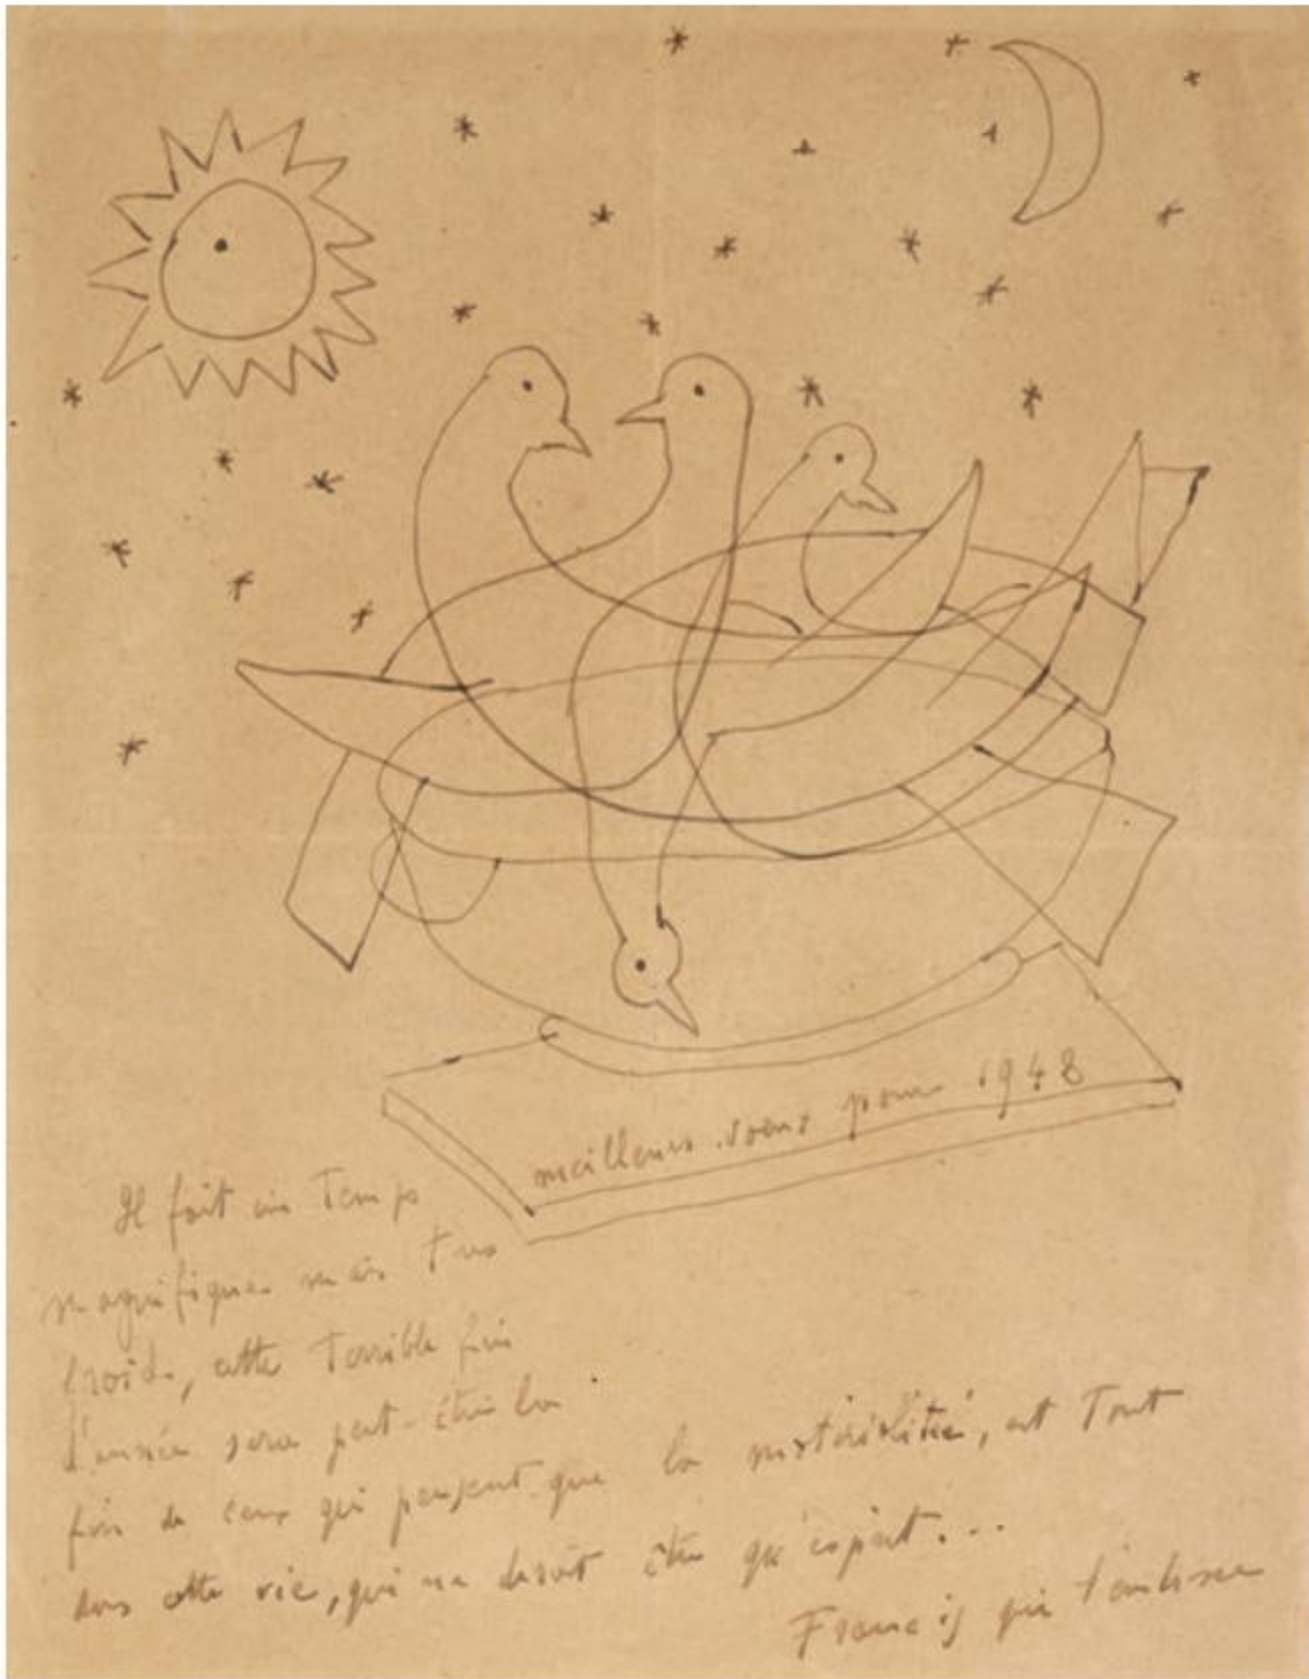 meilleurs voeux pour 1948
Il fait un Temps
magnifique mais très
froid, cette Terrible fin
d'année sera peut-être la
fin de ceux qui pensent que la matérialité, est Tout
dans cette vie, qui ne devrait être qu'esprit...
Francis qui t'embrasse